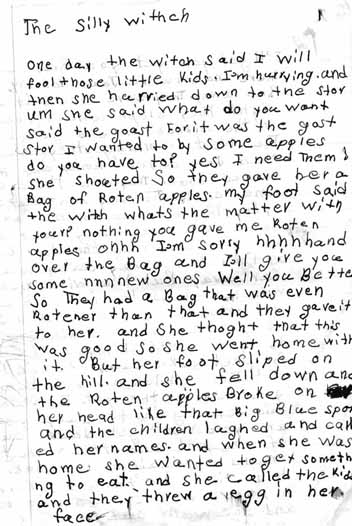 The Silly withch
One day the witch said I will
fool those little kids. I'm hurrying. and
then she hurried down to the stor
um she said what do you want
said the goast For it was the gost
stor I wanted to by some apples
do you have to? yes I need Them!
she shoeted So they gave her a
Bag of Roten apples. my foot said
the with whats the matter with
your? nothing you gave me Roten
apples ohhh I'm sorry hhhhhand
over the Bag and I'll give you
some nnnnew ones Well you Bette
So They had a Bag that was even
Rotener than that and they gave it
to her. and She thoght that this
was good so she went home with
it. But her foot sliped on
the hill. and she fell down and
the Roten apples Broke on
her head like that Big Blue spor
and the children laghed and call
ed her names. and when she was
home she wanted to get someth
ng to eat. and she called the kids
and they threw a egg in her
face.